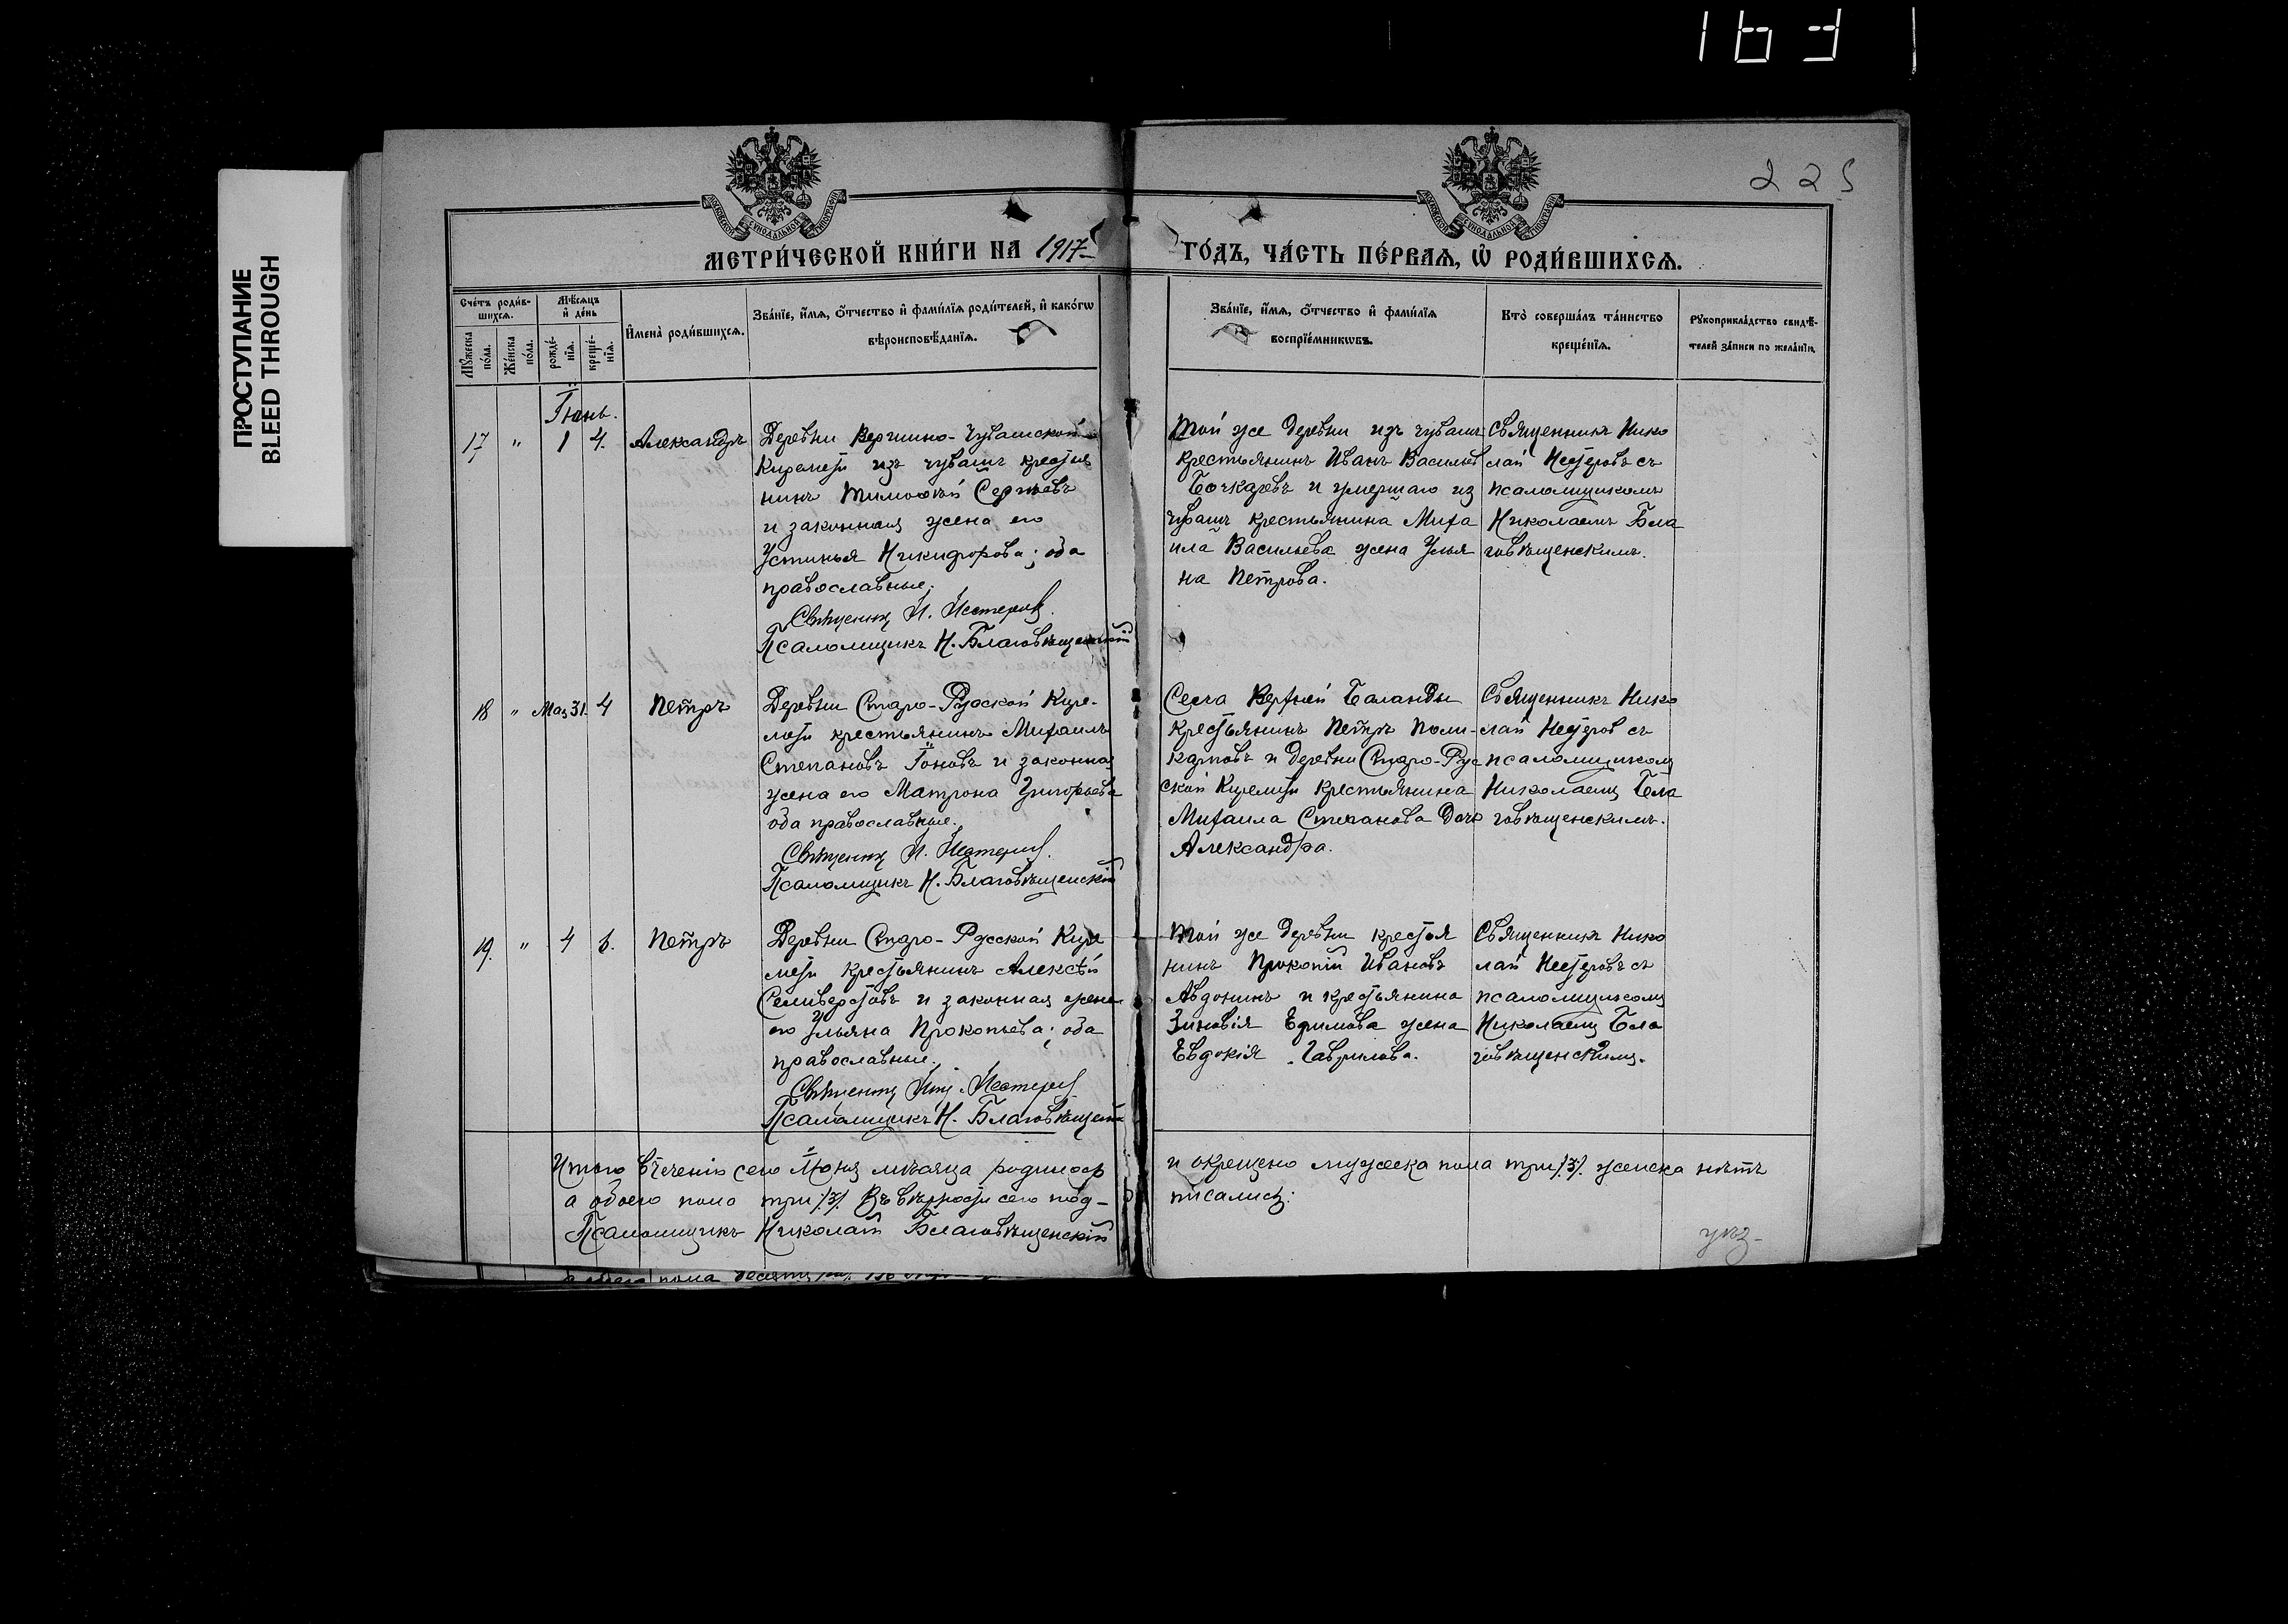 1631
ПРОСТУПАНИЕ
BLEED THROUGH
225
МЕТРИ́ЧЕСКОЙ КНИ́ГИ НА 1917
ГО́ДЪ, ЧА́СТЬ ПЕ́РВАѦ, Ѽ РОДИ́ВШИХСѦ.
Сче́тъ роди́в-
шихсѧ.
Мѣ́сѧцъ
и҆ де́нь
Мꙋ́жеска
по́ла.
Же́нска
по́ла.
рожде́-
нїѧ.
креще́-
нїѧ.
И҆мена̀ роди́вшихсѧ.
Зва́нїе, и҆́мѧ, ѻ҆́тчество и҆ фами́лїѧ роди́телей, и҆ како́гѡ
вѣроисповѣ́данїѧ.
Зва́нїе, и҆́мѧ, ѻ҆́тчество и҆ фами́лїѧ
воспрїе́мникѡвъ.
Кто̀ соверша́лъ та́инство
креще́нїѧ.
Рꙋкоприкла́дство свидѣ́-
телей за́писи по жела́нїю.
Іюнь.
17 " 1 4. Александръ
Деревни Вершино-Чувашской
Киремети изъ чувашъ крестья
нинъ Тимофей Сергѣевъ
и законная жена его
Устинья Никифорова; оба
православные.
Священникъ Н. Нестеровъ.
Псаломщикъ Н. Благовѣщенскій
Той же деревни изъ чувашъ
крестьянинъ Иванъ Васильев
Бочкаревъ и умершаго из
чувашъ крестьянина Миха
ила Васильева жена Улья
на Петрова.
Священникъ Нико
лай Нестеровъ съ
псаломщикомъ
Николаемъ Бла
говѣщенскимъ.
18 " Мая 31. 4 Петръ
Деревни Старо-Русской Кире-
мети крестьянинъ Михаилъ
Степановъ Іоновъ и законная
жена его Матрона Григорьева
оба православные.
Священникъ Н. Нестеровъ.
Псаломщикъ Н. Благовѣщенскій
Села Верхней Баланды
крестьянинъ Петръ Поли-
карповъ и деревни Старо-Рус
ской Киремети крестьянина
Михаила Степанова дочь
Александра.
Священникъ Нико
лай Нестеров съ
псаломщикомъ
Николаемъ Бла
говѣщенскимъ.
19. " 4 6. Петръ
Деревни Старо-Русской Кире
мети крестьянинъ Алексѣй
Селиверстовъ и законная жена
его Ульяна Прокопьева; оба
православные.
Священникъ Ник. Нестеровъ
Псаломщикъ Н. Благовѣщенскій
Той же деревни крестья
нинъ Прокопій Ивановъ
Авдонинъ и крестьянина
Зиновія Ефимова жена
Евдокія Гаврилова.
Священникъ Нико
лай Нестеровъ съ
псаломщикомъ
Николаемъ Бла
говѣщенскимъ.
Итого втеченіи сего Іюня мѣсяца родилося
и окрещено мужеска пола три /3/. женска нѣтъ
а обоего пола три /3/ Въ вѣрности сего под-
писались:
Псаломщикъ Николай Благовѣщенскій